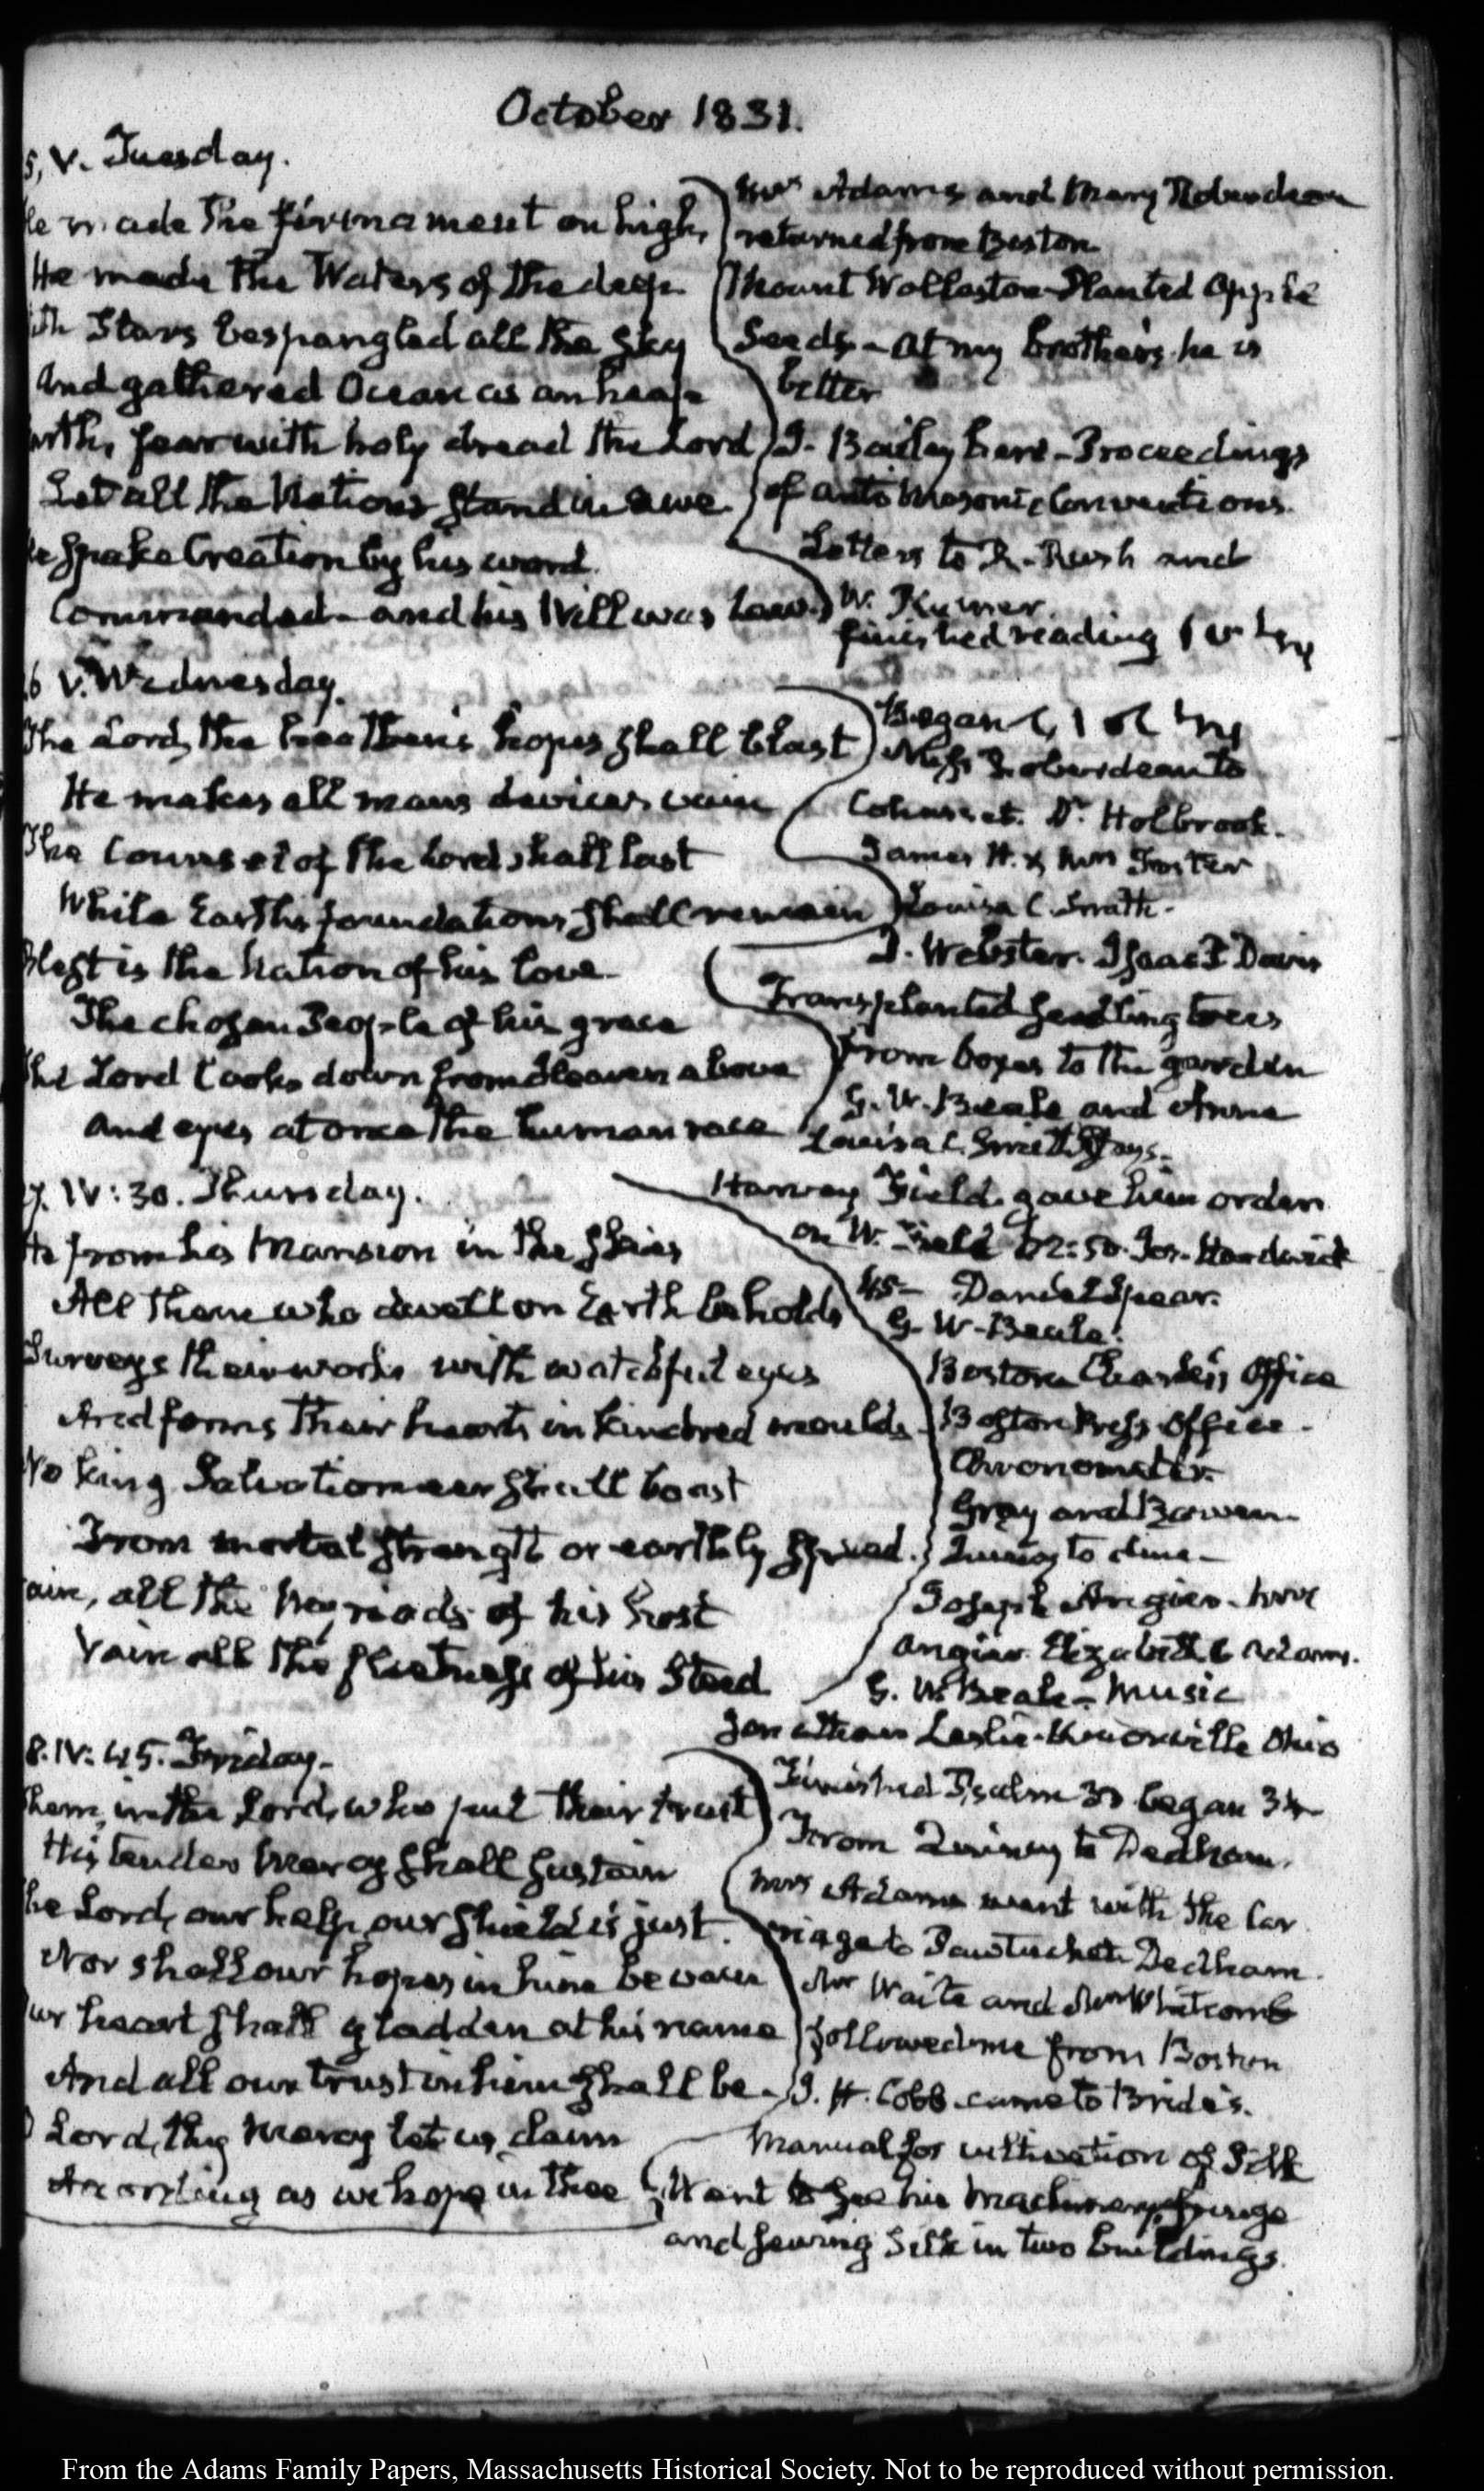 October 1831.
5, V. Tuesday.
He made the firmament on high,
He made the Waters of the deep
With Stars bespangled all the Sky
And gathered Ocean as an heap
Earth, fear with holy dread the Lord
Let all the Nations stand in awe.
He spake Creation by his word.
Commanded - and his Will was Law.
Mrs Adams and Mary Roberdeau
returned from Boston
Mount Wollaston - Planted Apple
Seeds - at my brother's he is
better
J. Bailey here - Proceedings
of Antimasonic Conventions.
Letters to R. Rush and
W.
finished reading
6 V. Wednesday.
The Lord, the heathen's hopes shall blast
He makes all mans devices vain
The Counsel of the Lord shall last
While Earths foundations shall remain
Blest is the Nation of his love.
The chosen People of his grace
The Lord looks down from Heaven above
And eyes at once the human race
Began
Miss Roberdeau to
Cohasset. Dr. Holbrook.
James H. & Mrs Foster
Louisa C. Smith.
D. Webster. Isaac P Davis
Transplanted seedling trees
from boxes to the garden
G. W. Beale and Anne
Louisa C. Smith stays.
7. IV: 30. Thursday.
He from his Mansion in the skies
All those who dwell on Earth beholds
Surveys their works with watchful eyes
And forms their hearts in kindred moulds.
No king Salvation e'er shall boast
From mortal strength or earthly speed.
Vain, all the Myriads of his host
Vain all the fleetness of his Steed
Harvey Field. gave him order
on W. Field 12:50. Jos. Hardwick
45- Daniel Spear.
G. W. Beale.
Boston Charles's Office
Boston Press Office.
Chronometer.
Gray and Bowen.
Quincy to dine -
Joseph Angier.
Angier Elizabeth C Adams.
G. W. Beale - Music
Jonathan Leslie - Knoxville Ohio
8. IV: 45. Friday.
Them, in the Lord, who put their trust
His tender Mercy shall sustain
The Lord, our help, our shield is just.
Nor shall our hopes in him be vain
Our heart shall gladden at his name
And all our trust in him shall be.
O Lord, thy Mercy let us claim
According as we hope in thee
Finished Psalm 33 began 34
From Quincy to Dedham.
Mrs Adams went with the car
riage to Pawtucket. Dedham.
Mr Waite and Mr Whitcomb
followed me from Boston
J. H. Cobb came to Bride's.
Manual for cultivation of Silk
Went to see his Machinery, fringe
and sewing Silk in two buildings.
From the Adams Family Papers, Massachusetts Historical Society. Not to be reproduced without permission.